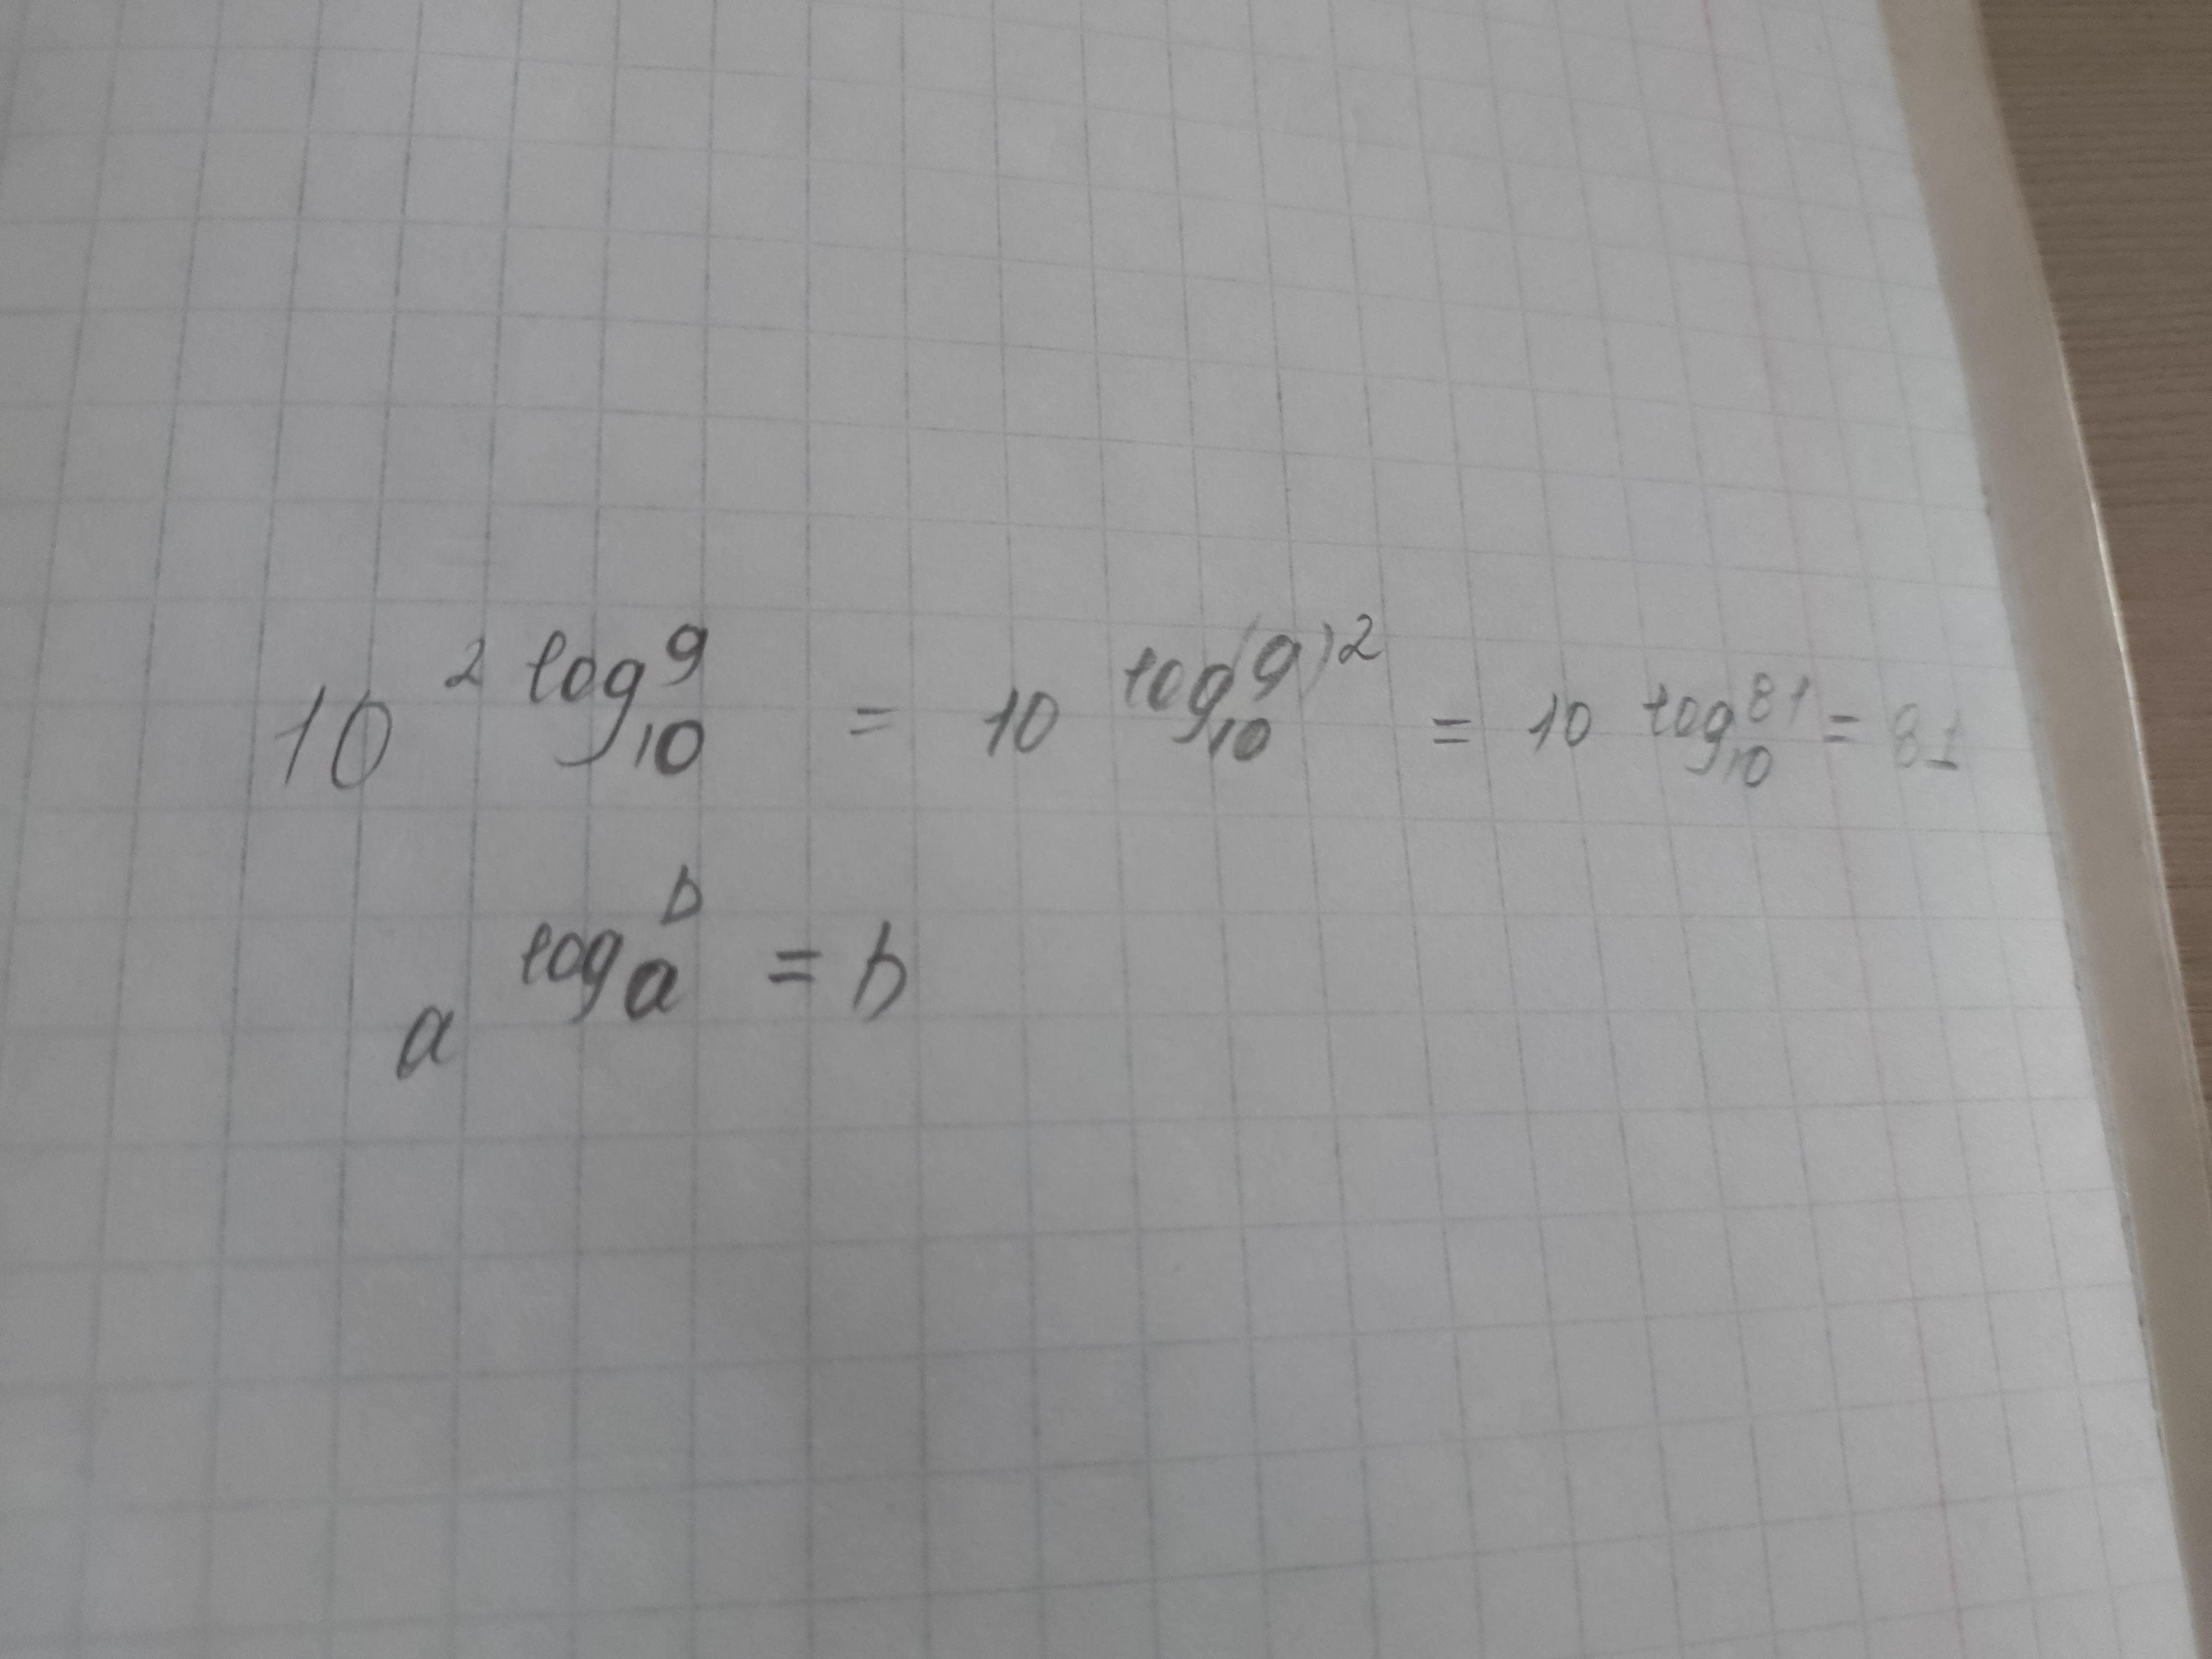 10^{2 log_{10} 9} = 10^{log_{10} (9)^2} = 10^{log_{10} 81} = 81
a^{log_a b} = b